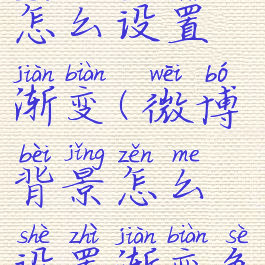 怎么设置
jiàn biàn wēi bó
渐变(微博
bèi jǐng zěn me
背景怎么
shè zhì jiàn biàn sè
设置渐变色